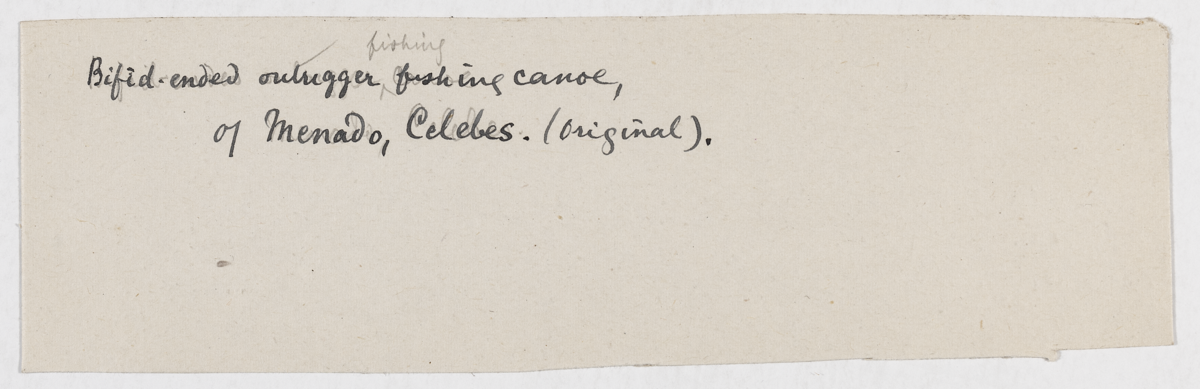 fishing
Bifid-ended outrigger, fishing canoe,
of Menado, Celebes. (Original).